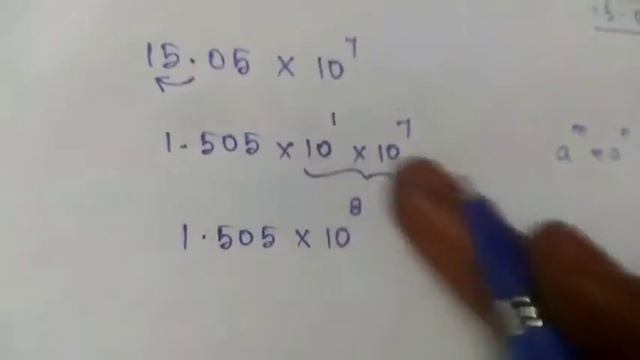 15.05 × 10⁷
1.505 × 10¹ × 10⁷
1.505 × 10⁸